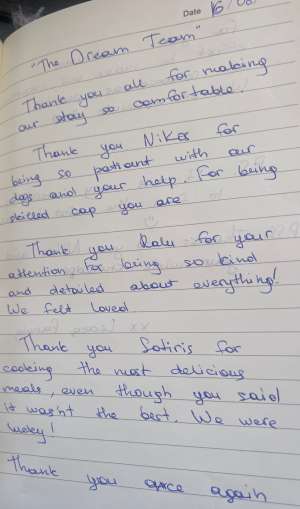 Date 16/08
"The Dream Team"
Thank you all for making
our stay so comfortable!
Thank you Nikos for
being so patiant with our
dogs and your help. For being
skilled cap you are
Thank you Ralu for your
attention for being so kind
and detailed about everything!
We felt loved
Thank you Sotiris for
cooking the most delicious
meals, even though you said
it wasn't the best. We were
lucky!
Thank you once again